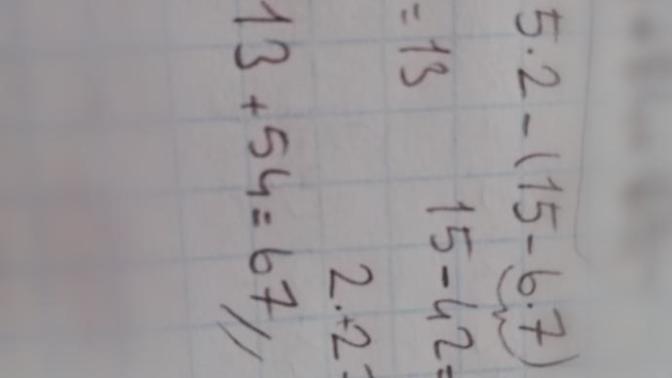 5.2-(15-6.7)
15-42=
=13
2.+2=
13+54=67//